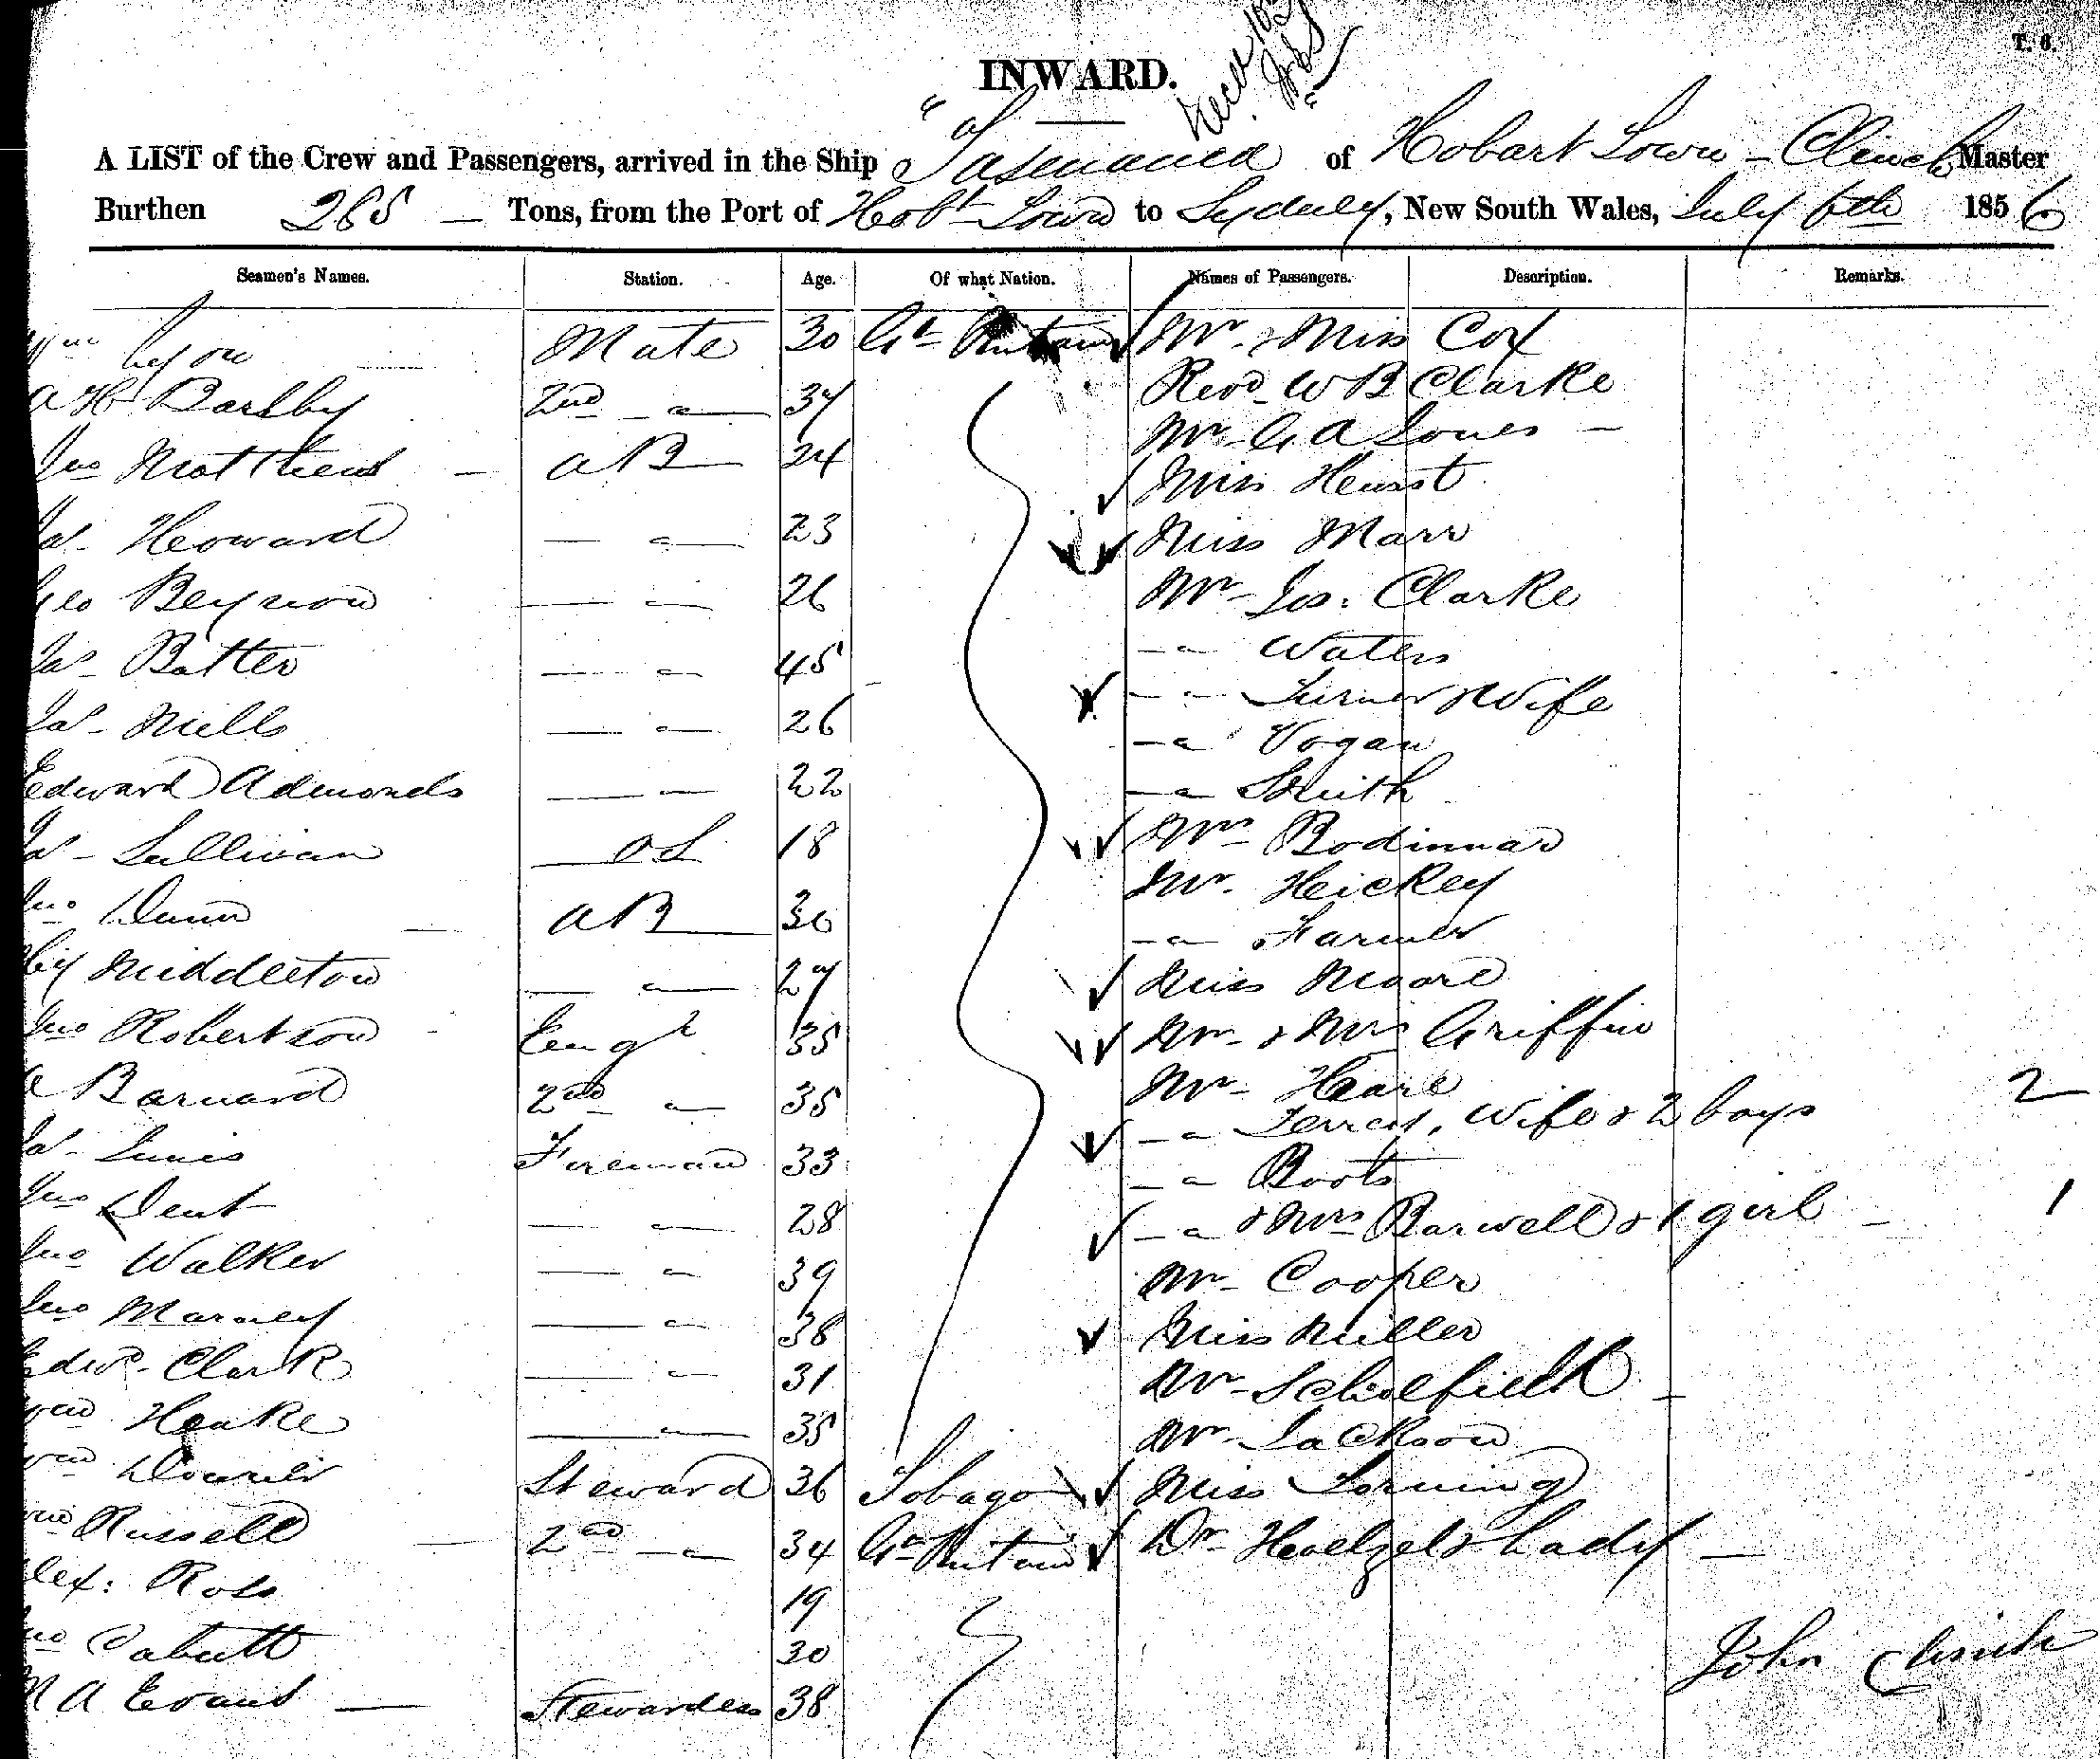 T. 6.
INWARD.
A LIST of the Crew and Passengers, arrived in the Ship "Tasmania" of Hobart Town - Clinch Master
Burthen 285 Tons, from the Port of Hobt Town to Sydney, New South Wales, July 6th 1856
Seamen's Names. Station. Age. Of what Nation. Names of Passengers. Description. Remarks.
Wm Lyon Mate 30 Gt Britain Mr & Miss Cox
A H Barlby 2nd 37 Revd W B Clarke
Jno Matthews AB 24 Mr G A Jones
Miss Hurst
Js Howard 23 Miss Marr
Geo Beynon 26 Mr Jos. Clarke
Jas Batten 45 Waters
Turner & Wife
Jas Mills 26 Vogan
Edward Admonds 22 Smith
Js Sullivan OS 18 Mrs Bodinnar
Mr. Hickey
Jno Dunn AB 30 Farmer
Middleton 27 Miss Moore
Jno Robertson Engr 35 Mr & Mrs Griffin
A Barnard 2nd 35 Mr Heare
wife & 2 boys 2
Js Innis Fireman 33 Boots
Jno Dent 28 & Mrs Barwell & 1 girl 1
Jno Walker 39 Mr Cooper
Jno Marney 38 Miss Miller
Edwd Clark 31 Mr Scholfield
Wm Henke 35 Mr Jackson
Wm Steward 36 Tobago Miss
Wm Russell 2nd 34 Gt Britain Dr Hoelzel & Lady
Alex: Ross 19
Jno Cabutt 30 John Clinch
M A Evans Stewardess 38